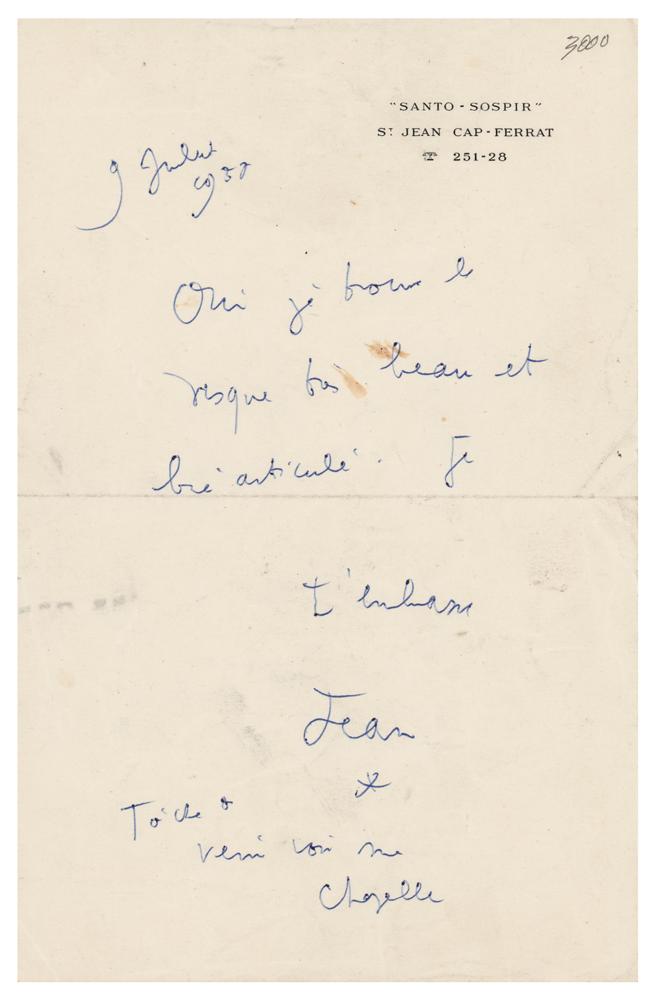 3000
"SANTO-SOSPIR"
ST JEAN CAP-FERRAT
☎ 251-28
9 Juillet
1958
Oui je trouve le
disque très beau et
bien articulé. Je
t'embrasse
Jean
*
Tâche de
venir voir ma
Chapelle